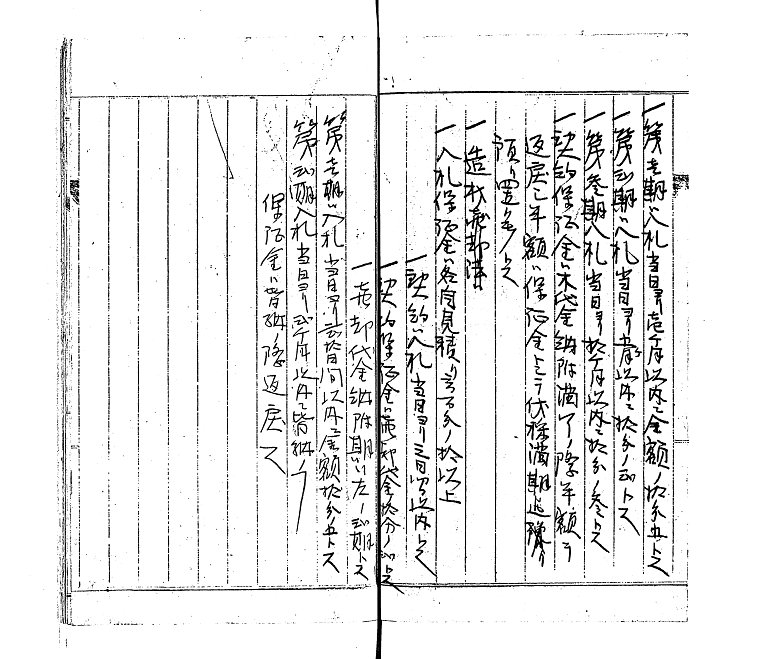 一第壱期ハ入札当日ヨリ壱ケ年以内ニ金額ノ拾分五トス
一第弐期ハ入札当日ヨリ五ケ年以内ニ拾分ノ弐トス
一第参期入札当日ヨリ拾ケ年以内ニ拾分ノ参トス
一契約保証金ハ木代金納附満了ノ際半額ヲ
返戻シ半額ハ保証金トシテ伐採満期迄預リ
預リ置クモノトス
一造材売却済
一入札保証金ハ各自見積リ高百分ノ拾以上
一契約ハ入札当日ヨリ三日以内トス
一契約保証金ハ売却代金拾分ノ弐トス
一売却代金納附期ハ左ノ弐期トス
第壱期ハ入札当日ヨリ 日間以内ニ金額拾分五トス
第弐期入札当日ヨリ 年以内ニ皆納ノ
保証金ハ皆納ノ際返戻ス